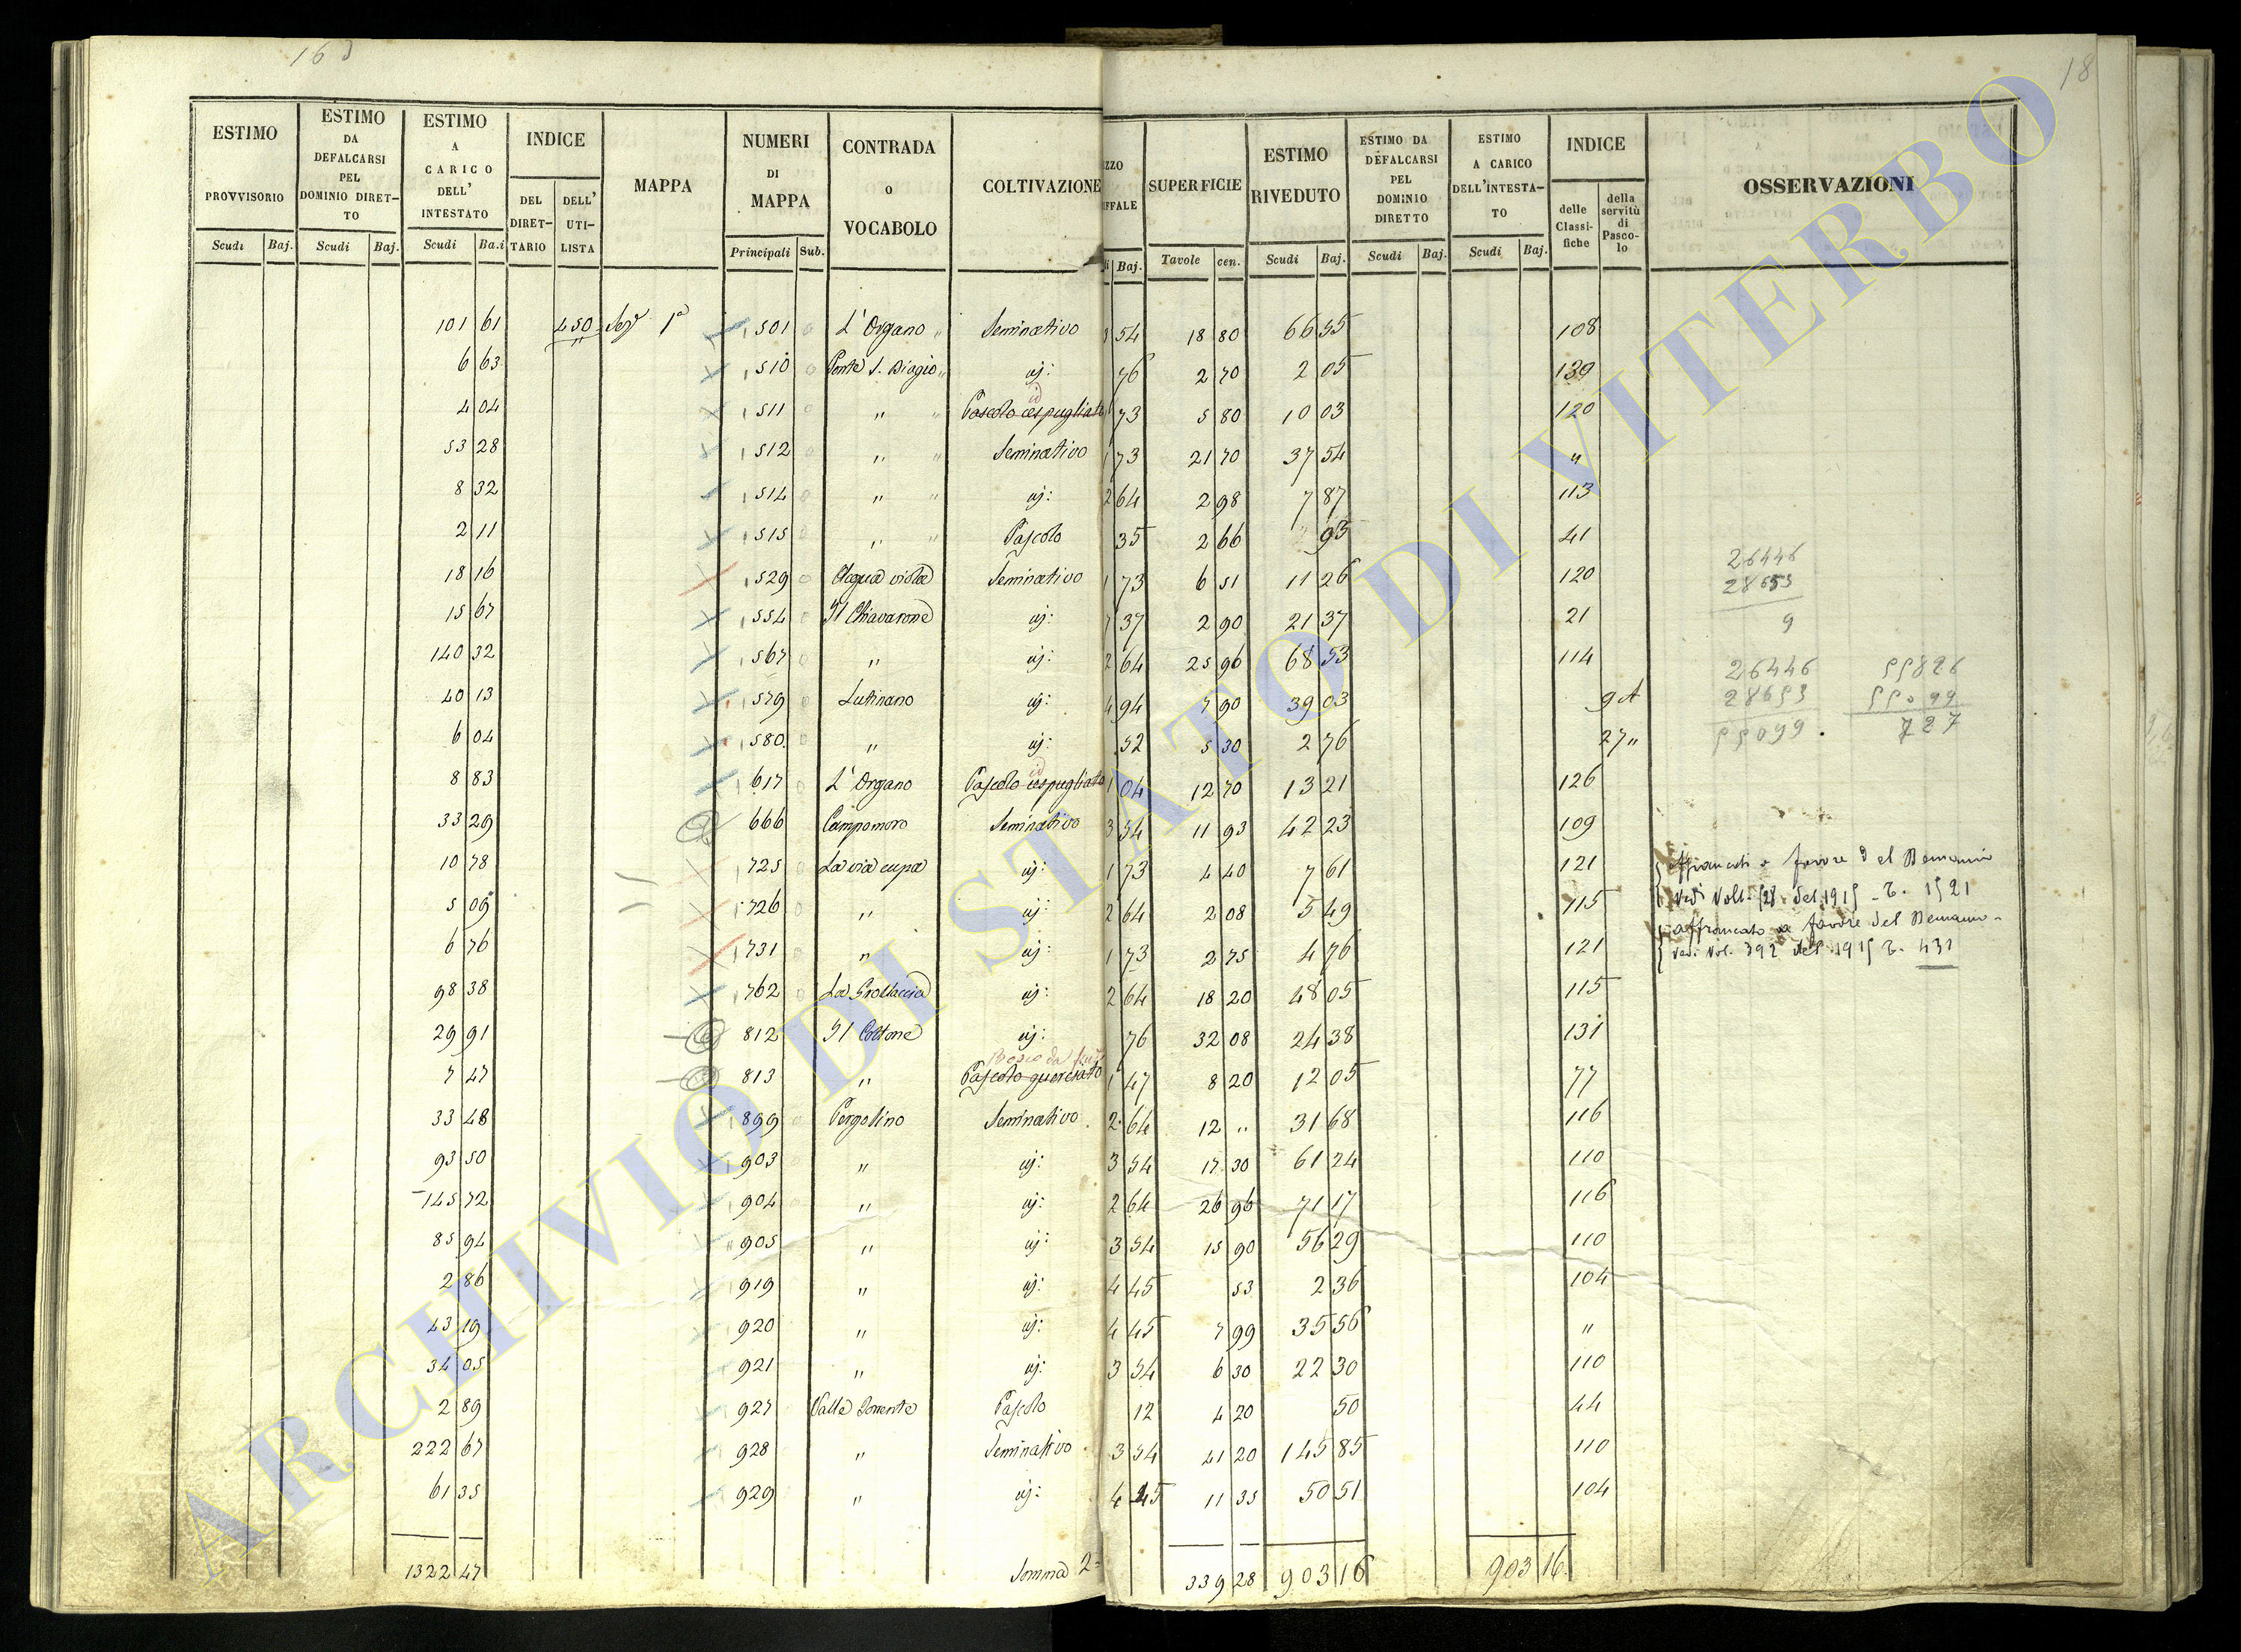 18
ESTIMO PROVVISORIO Scudi Baj.
ESTIMO DA DEFALCARSI PEL DOMINIO DIRETTO Scudi Baj.
ESTIMO A CARICO DELL' INTESTATO Scudi Ba.i
INDICE DEL DIRETTARIO DELL' UTILISTA
MAPPA
NUMERI DI MAPPA Principali Sub.
CONTRADA o VOCABOLO
COLTIVAZIONE
EZZO IFFALE Baj.
SUPERFICIE Tavole cen.
ESTIMO RIVEDUTO Scudi Baj.
ESTIMO DA DEFALCARSI PEL DOMINIO DIRETTO Scudi Baj.
ESTIMO A CARICO DELL'INTESTATO Scudi Baj.
INDICE delle Classifiche della servitù di Pascolo
OSSERVAZIONI
101 61 450 Sez.e 1a 501 L'Organo Seminativo 3 54 18 80 66 55 108
6 63 510 Ponte S. Biagio uj: 76 2 70 2 05 139
4 04 511 " " Pascolo cespugliato id 1 73 5 80 10 03 120
53 28 512 " " Seminativo 1 73 21 70 37 54 "
8 32 514 " " uj: 2 64 2 98 7 87 113
2 11 515 " " Pascolo 35 2 66 " 93 41
18 16 529 Acqua viola Seminativo 1 73 6 51 11 26 120
15 67 554 Il Chiavarone uj: 7 37 2 90 21 37 21
140 32 567 " uj: 2 64 25 96 68 53 114
40 13 579 Luttinano uj: 4 94 7 90 39 03 9 A
6 04 580 " uj: 52 5 30 2 76 27 "
8 83 617 L'Organo Pascolo cespugliato id 1 04 12 70 13 21 126
33 29 666 Campomoro Seminativo 3 54 11 93 42 23 109
10 78 725 La via cupa uj: 1 73 4 40 7 61 121
5 09 726 " uj: 2 64 2 08 5 49 115
6 76 731 " uj: 1 73 2 75 4 76 121
98 38 762 La Grottaccia uj: 2 64 18 20 48 05 115
29 91 812 Il Cottone uj: 76 32 08 24 38 131
7 47 813 " Pascolo querciato Bosco da 1 47 8 20 12 05 77
33 48 899 Pergolino Seminativo 2 64 12 " 31 68 116
93 50 903 " uj: 3 54 17 30 61 24 110
145 72 904 " uj: 2 64 26 96 71 17 116
85 94 905 " uj: 3 54 15 90 56 29 110
2 86 919 " uj: 4 45 53 2 36 104
43 19 920 " uj: 4 45 7 99 35 56 "
34 05 921 " uj: 3 54 6 30 22 30 110
2 89 927 Valle Pascolo 12 4 20 50 44
222 67 928 " Seminativo 3 54 41 20 145 85 110
61 35 929 " uj: 4 45 11 35 50 51 104
1322 47 Somma 2a 339 28 903 16 903 16
26446
28653
9
26446 55826
28653 55099
55099 727
affrancati a favore del Demanio
Vedi Vol. del 1915 - T. 1521
affrancato a favore del Demanio
Vedi Vol. 392 del 1915 T. 431
ARCHIVIO DI STATO DI VITERBO